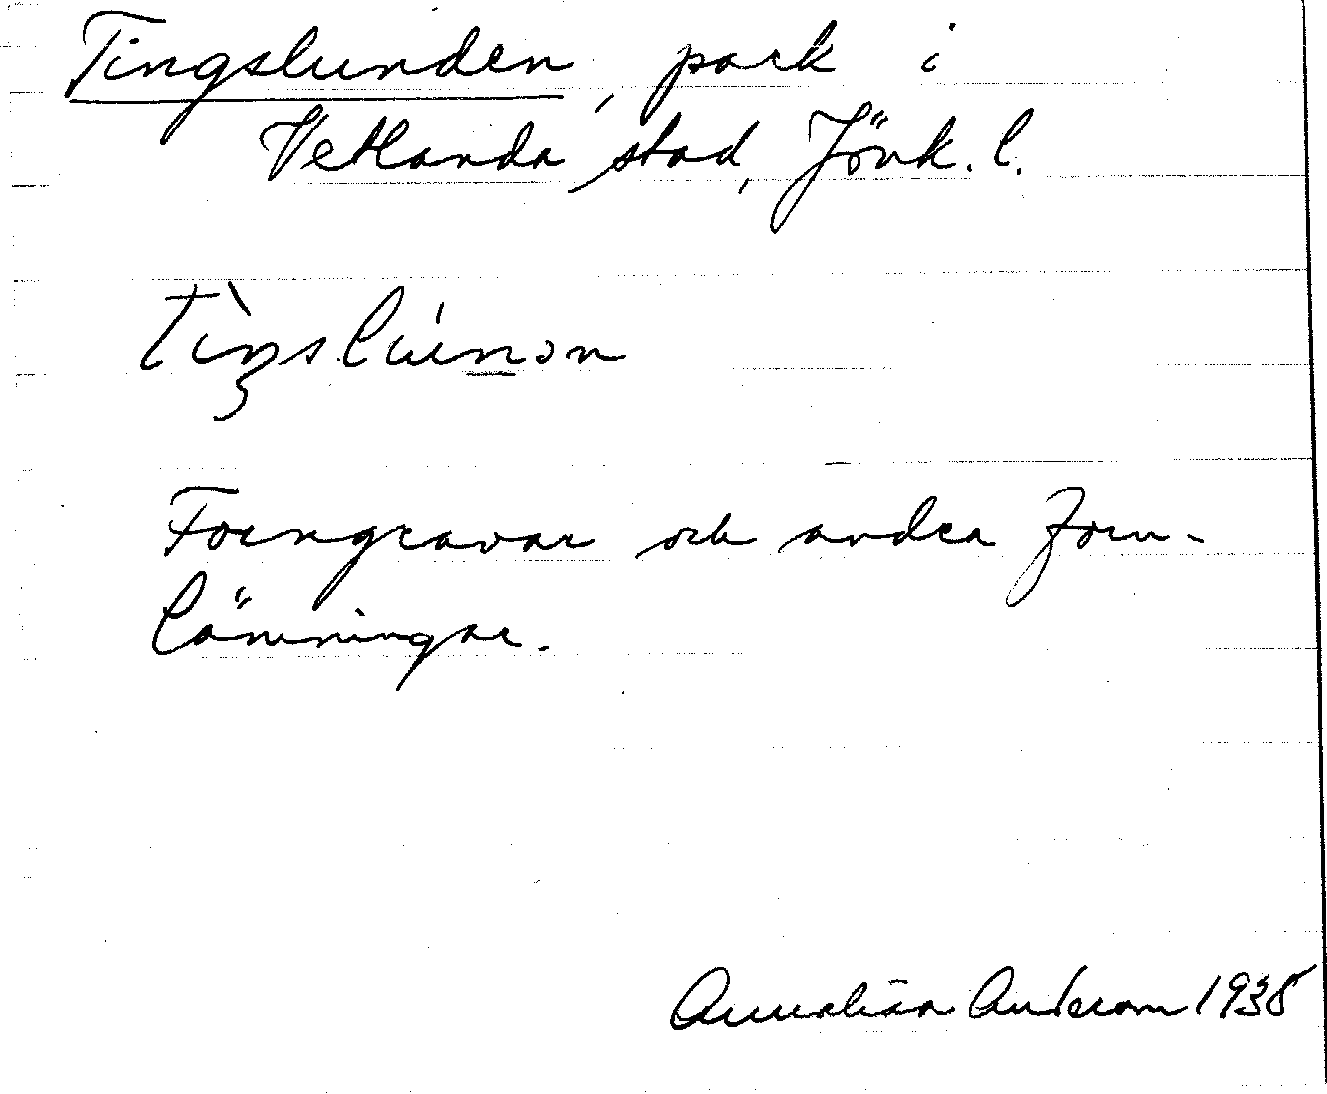 Tingslunden, park i
Vetlanda stad, Jönk. l.
tìŋslúnən
Forngravar och andra forn-
lämningar.
Annalisa Anderson 1938